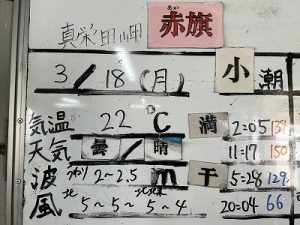 真栄田岬
あか
赤旗
3/18(月) 小潮
気温 22℃ 満 2:05 139
天気 曇/晴 11:17 150
波 うねり 2~2.5m 干 5:28 129
風 北 5~5~ 北北東 5~4 20:04 66